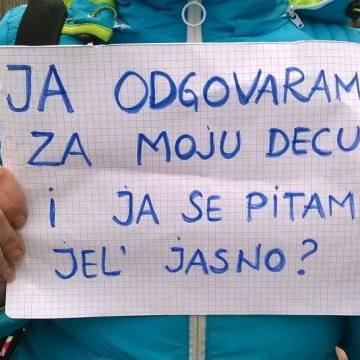 JA ODGOVARAM
ZA MOJU DECU
i JA SE PITAM
JEL' JASNO?